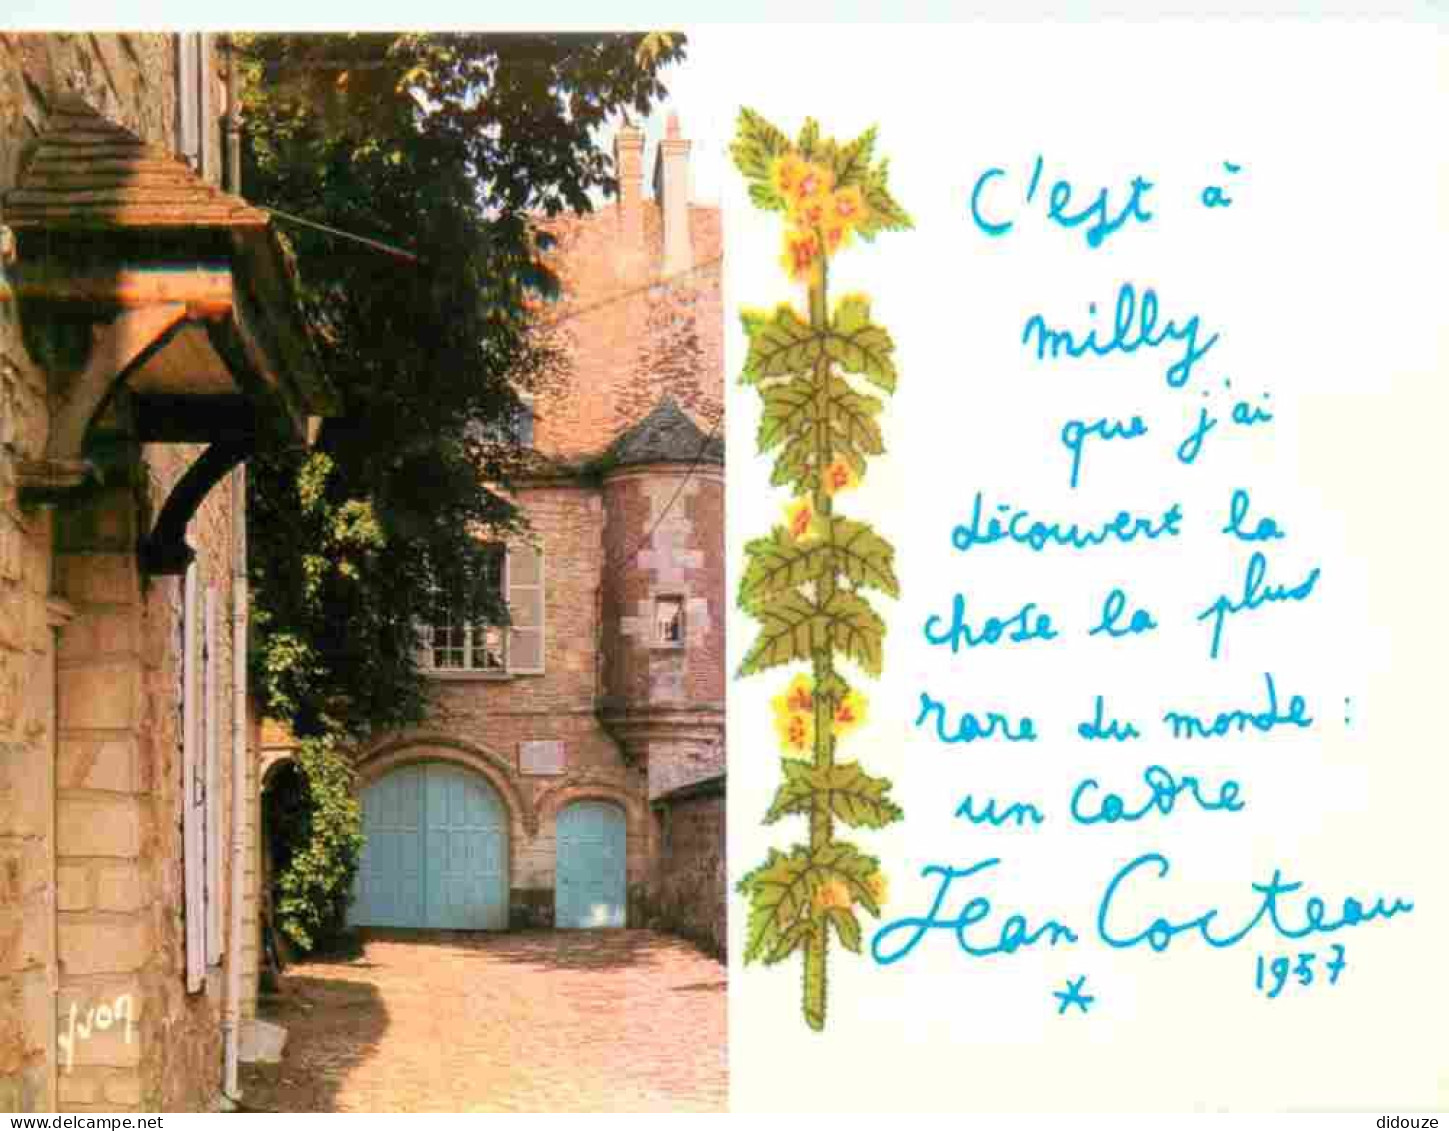 C'est à
milly
que j'ai
découvert la
chose la plus
rare du monde :
un cadre
Jean Cocteau
*
1957
yvon
delcampe.net
didouze